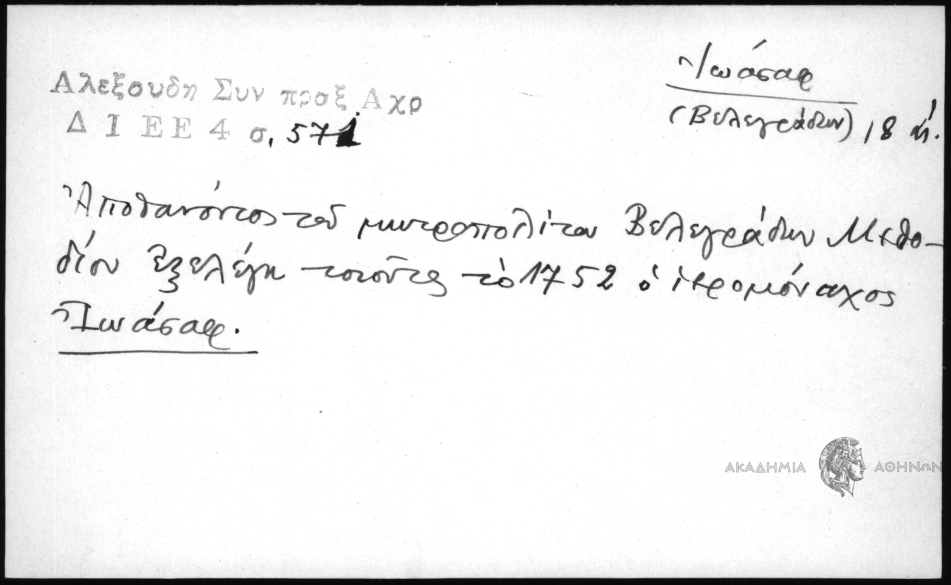 Ἰωάσαφ
(Βελεγράδων) 18 αἰ.
Αλεξουδη Συν προξ Αχρ
Δ Ι Ε Ε 4 σ. 571
Ἀποθανόντος τοῦ μητροπολίτου Βελεγράδων Μεθο-
δίου ἐξελέγη τοιοῦτος τὸ 1752 ὁ ἱερομόναχος
Ἰωάσαφ.
ΑΚΑΔΗΜΙΑ ΑΘΗΝΩΝ